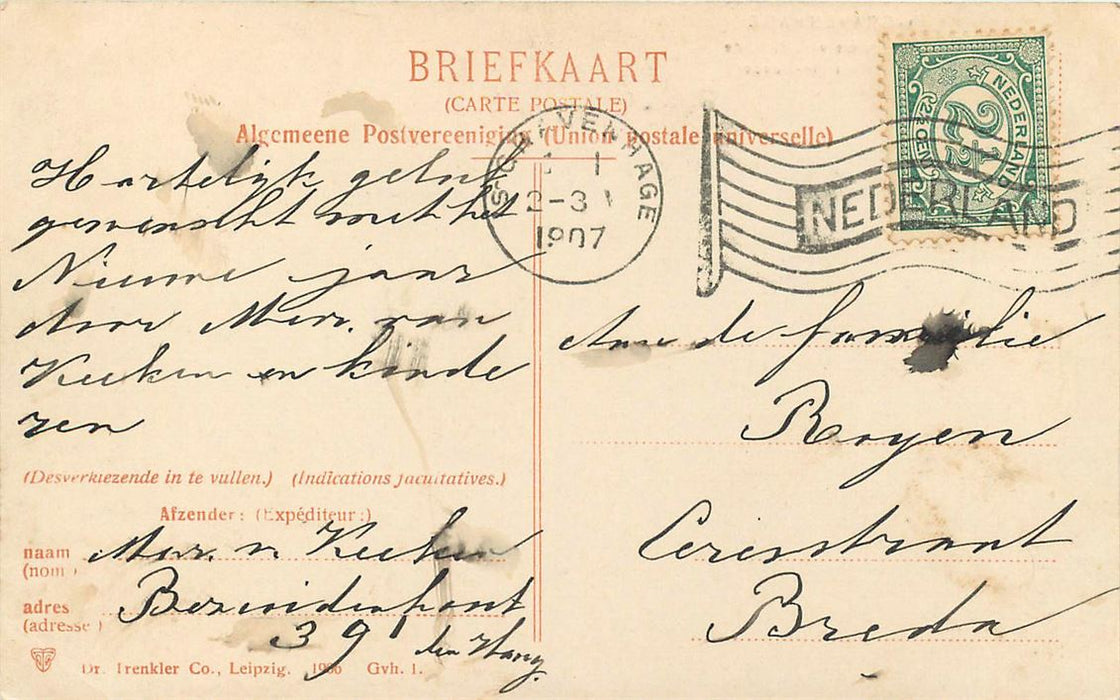 BRIEFKAART
(CARTE POSTALE)
Algemeene Postvereeniging (Union postale universelle)
S'GRAVENHAGE
1
2-3
1907
NEDERLAND
NEDERLAND
2½
CENT
Hartelijk geluk
gewenscht met het
Nieuwe jaar
door Mevr. van
Keeken en kinde
ren
Aan de familie
Royen
Ceresstraat
Breda
(Desverkiezende in te vullen.) (Indications facultatives.)
Afzender: (Expéditeur:)
naam Mevr. v. Keeken
(nom)
adres Bezuidenhout
(adresse)
391 den Haag
Dr. Trenkler Co., Leipzig. 1906 Gvh. 1.